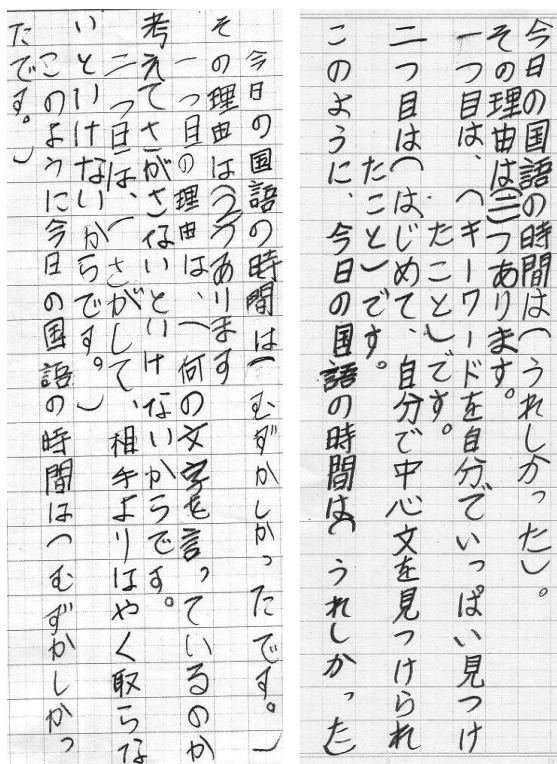 今日の国語の時間は(うれしかった)。
その理由は(二)つあります。
一つ目は、(キーワードを自分でいっぱい見つけ
たこと)です。
二つ目は(はじめて、自分で中心文を見つけられ
たこと)です。
このように、今日の国語の時間は(うれしかった)
今日の国語の時間は(むずかしかったです。)
その理由は(2)つあります
一つ目の理由は、(何の文字を言っているのか
考えてさがさないといけないからです。
二つ目は、(さがして、相手よりはやく取らな
いといけないからです。)
このように今日の国語の時間は(むずかしかっ
たです。)